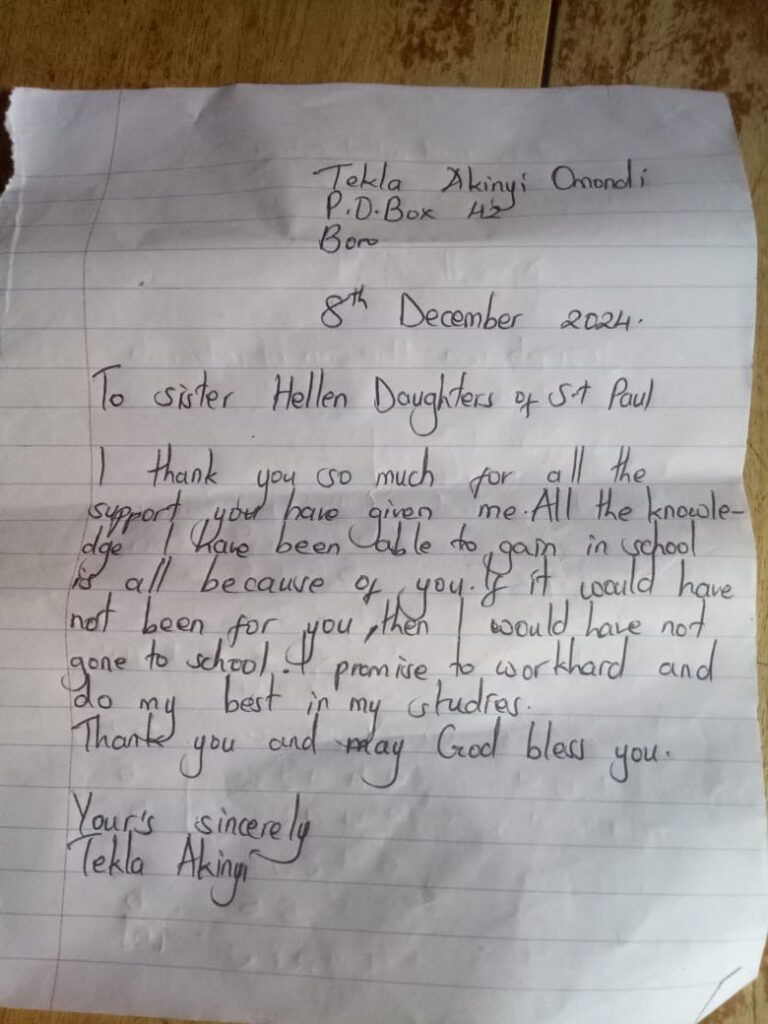 Tekla Akinyi Omondi
P.O.Box 42
Boro
8th December 2024.
To sister Hellen Daughters of St Paul
I thank you so much for all the
support you have given me. All the knowle-
dge I have been able to gain in school
is all because of you. If it would have
not been for you, then I would have not
gone to school. I promise to workhard and
do my best in my studies.
Thank you and may God bless you.
Your's sincerely
Tekla Akinyi